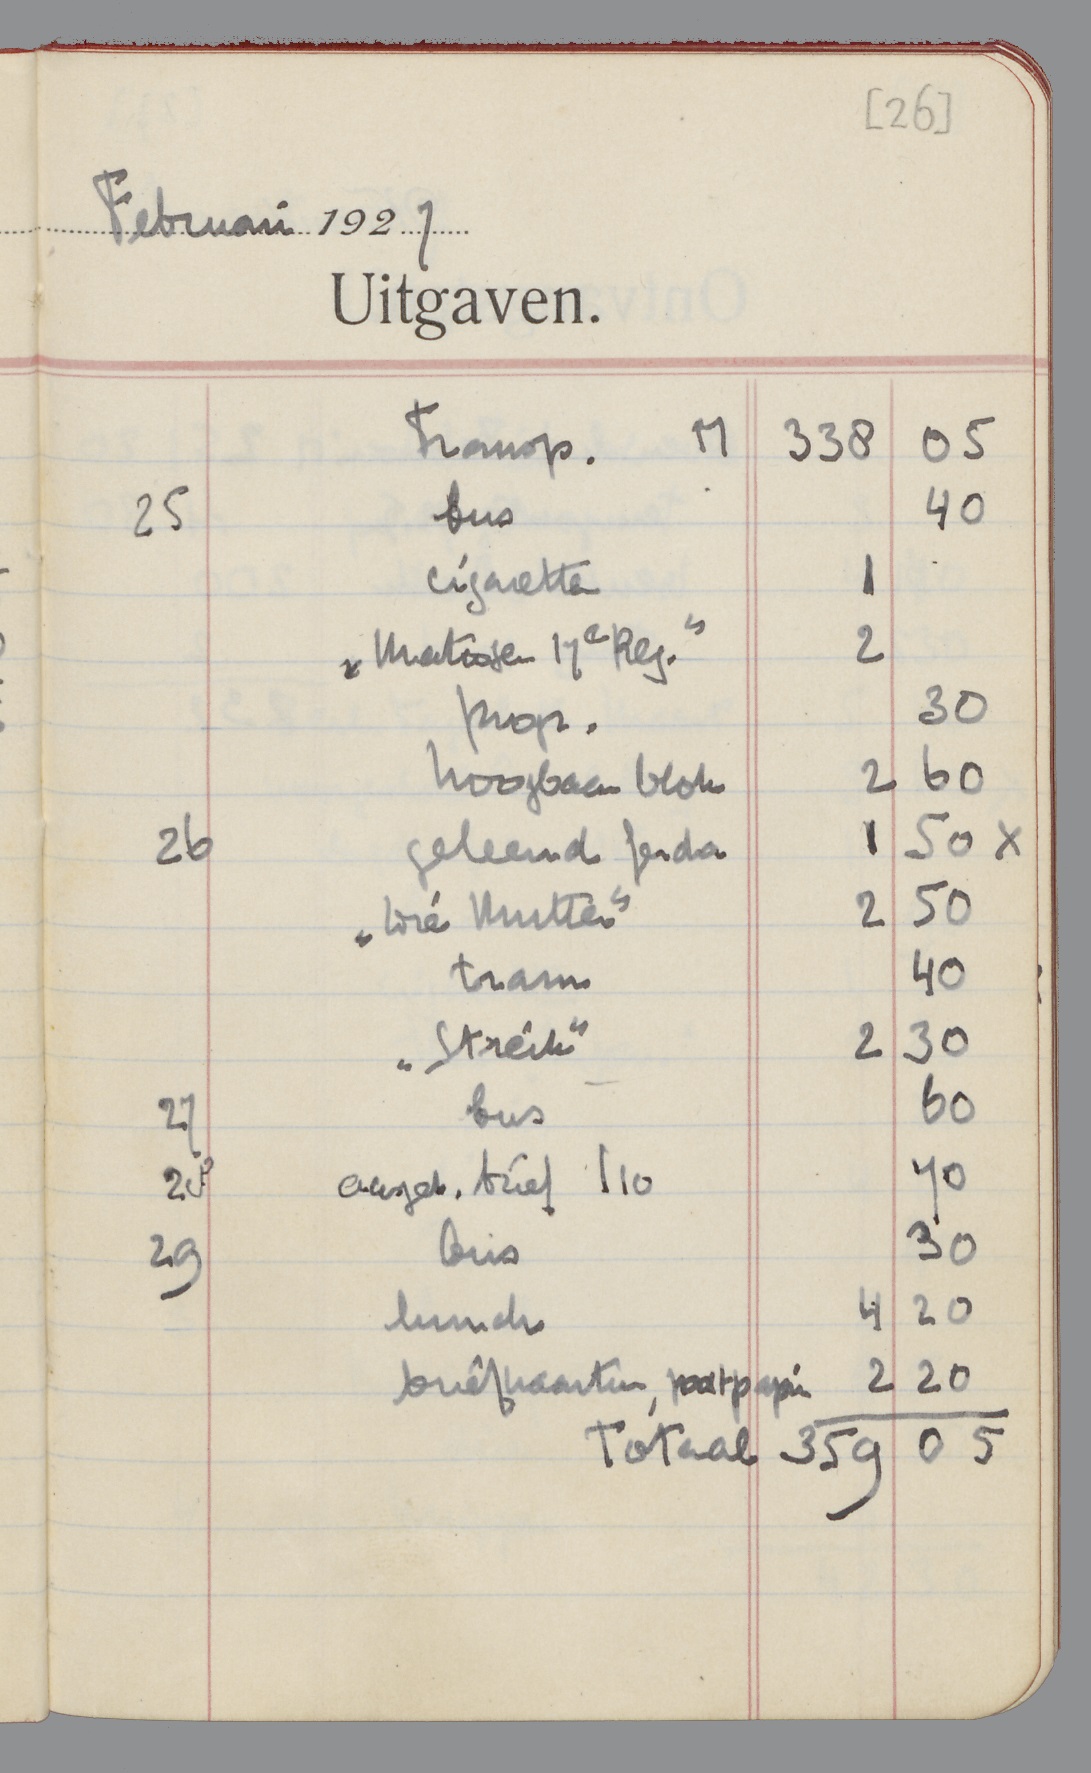 [26]
Februari 1927
Uitgaven.
Transp. M 338 05
25 bus 40
cigaretten 1
„Matrosen 17e Reg.“ 2
progr. 30
hoogbaan blok 2 60
26 geleend Gerda 1 50 x
„Die Mutter“ 2 50
tram 40
„Streik“ 2 30
27 bus 60
28 aanget. brief 110 70
29 bus 30
lunch 4 20
briefkaarten, postpapier 2 20
Totaal 359 05